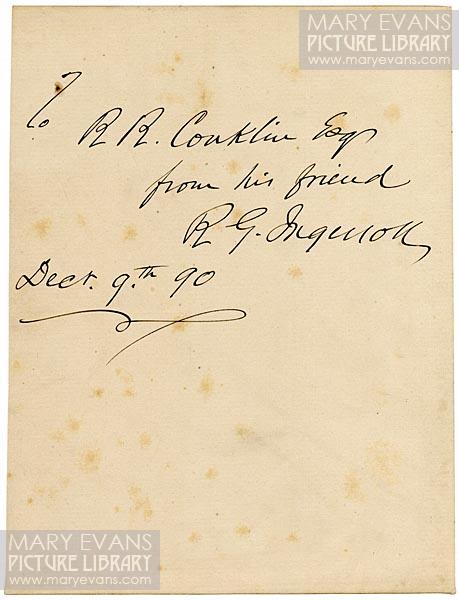 MARY EVANS
PICTURE LIBRARY
www.maryevans.com
To
R R. Conklin Esq
from his friend
R G. Ingersoll
Dect. 9.th 90
MARY EVANS
PICTURE LIBRARY
www.maryevans.com